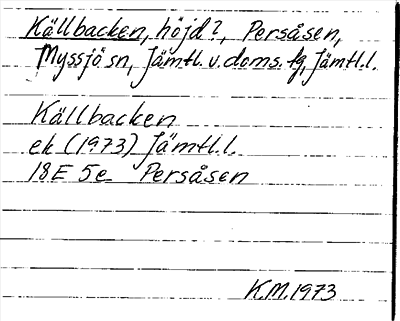 Källbacken, höjd?, Persåsen,
Myssjö sn, Jämtl. v. doms. tg, Jämtl. l.
Källbacken
ek (1973) Jämtl. l.
18E 5e Persåsen
K.M. 1973